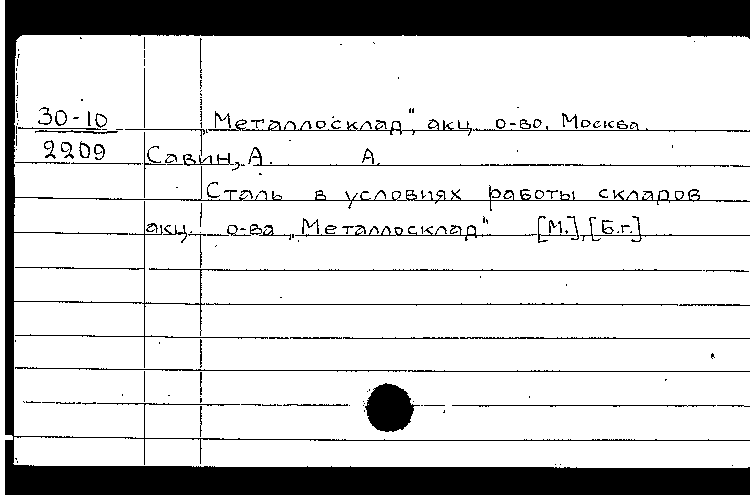 30-10 „Металлосклад", акц. о-во. Москва.
2209 Савин, А. А.
Сталь в условиях работы складов
акц. о-ва „Металлосклад". [М.], [Б.г.]